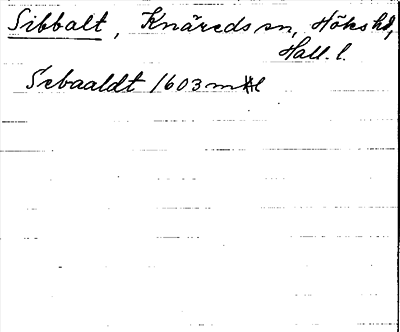 Sibbalt, Knäreds sn, Höks hd,
Hall. l.
Sebaaldt 1603 mtl